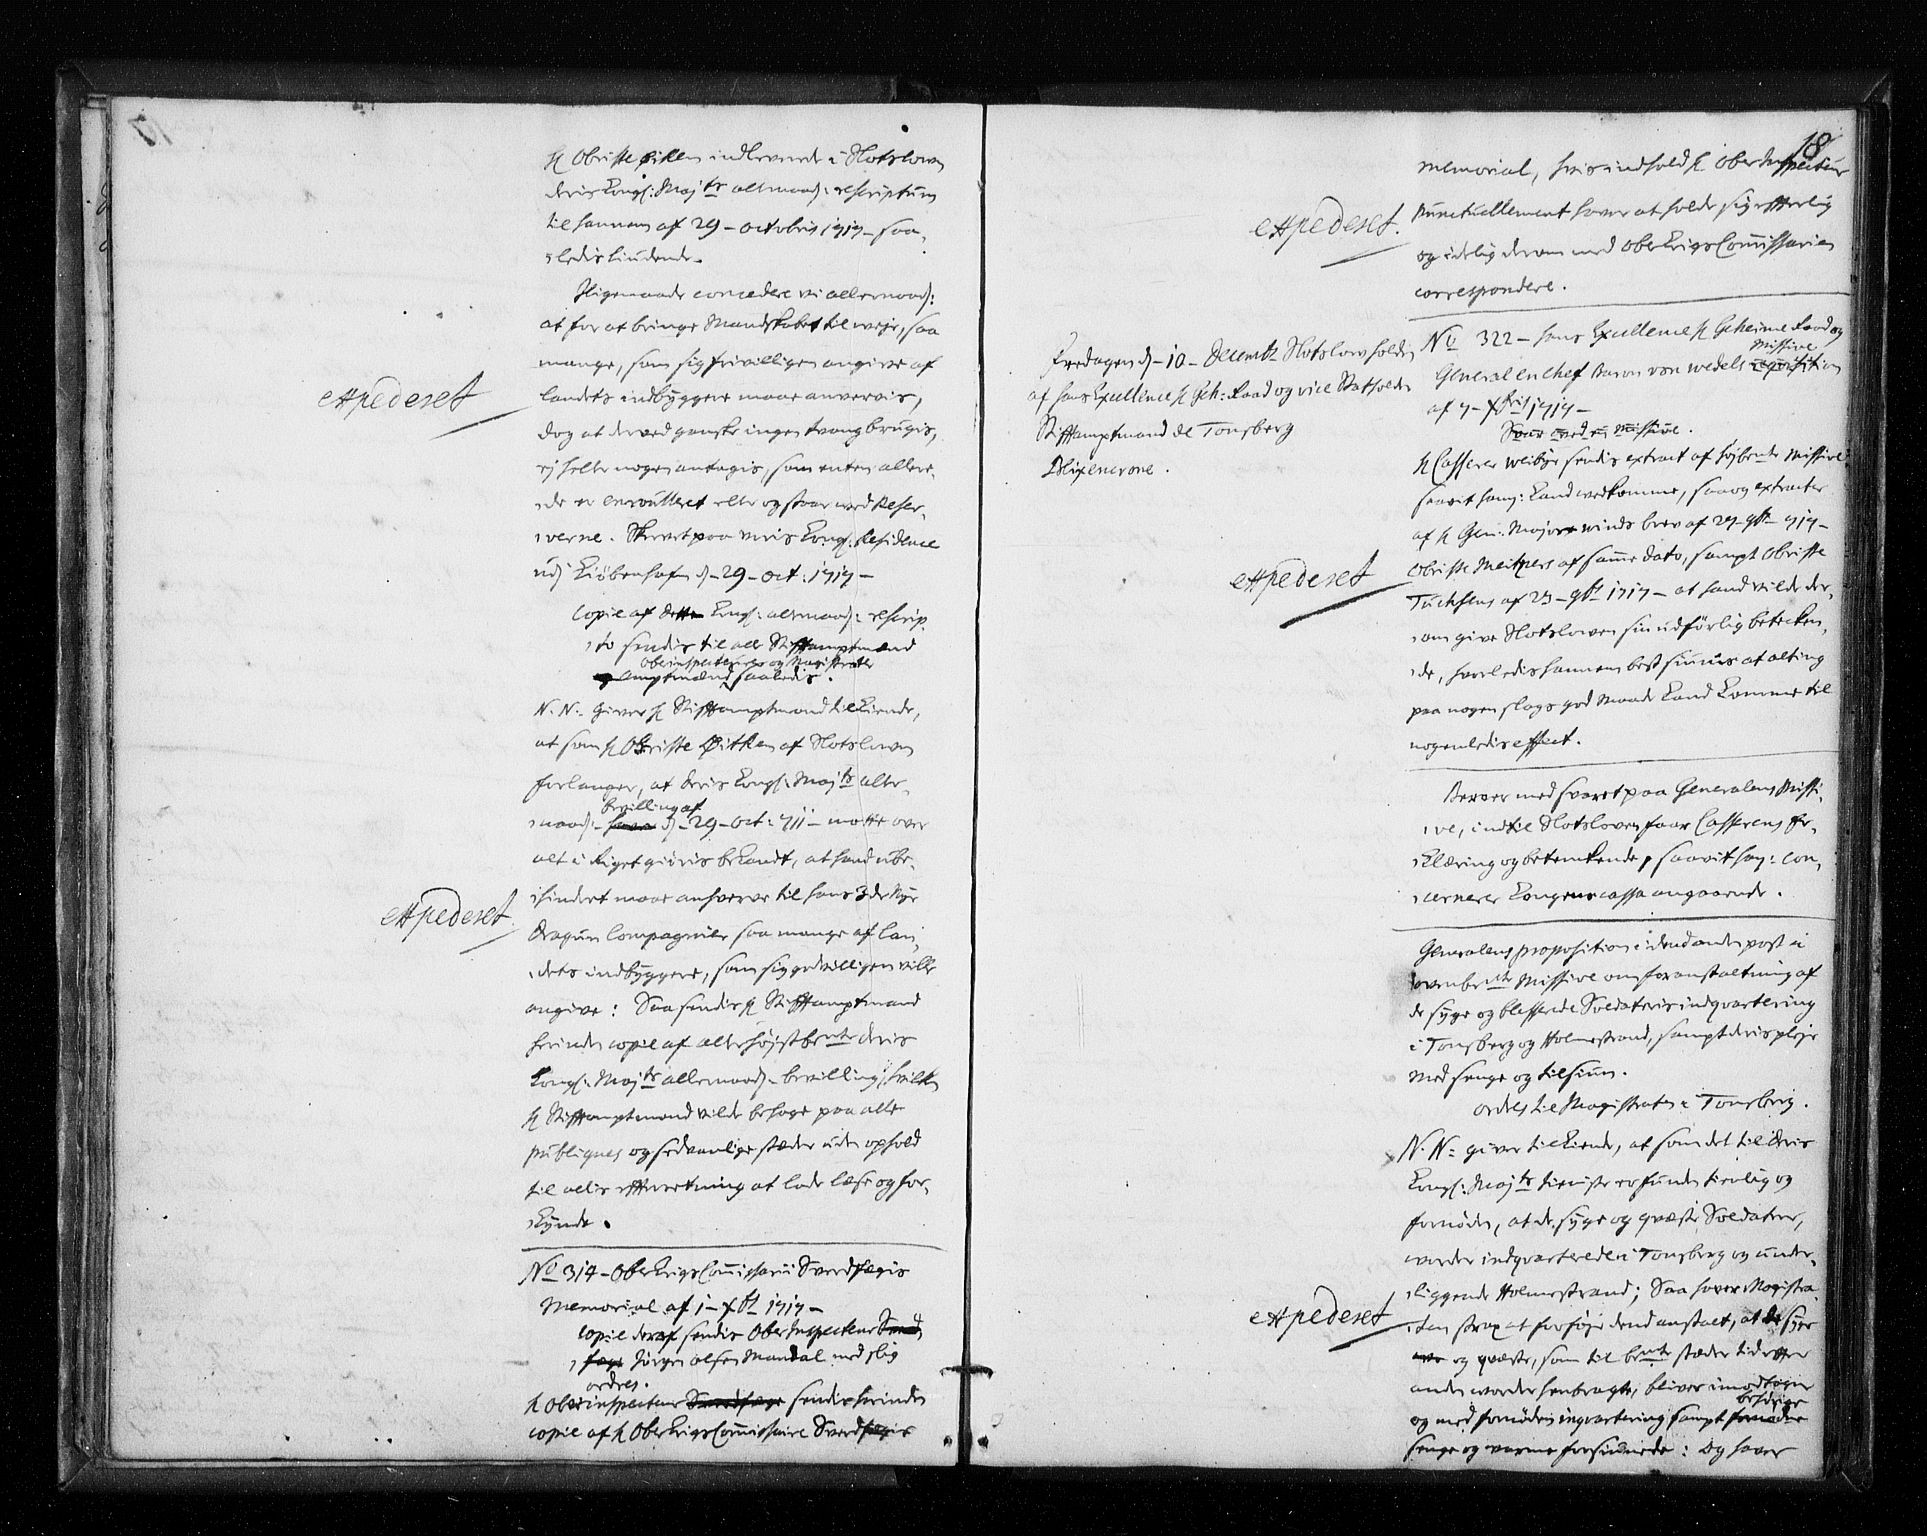 H Obriste Øitken indleverede i Slotsloven
deris Kongl: Majts allernaad: rescriptum
til hannem af 29 – octobris 1717 – saa,
,ledis liudende.
Iligemaade concedere vi allernaad:
at for at bringe Mandskabet til weje, saa
mange, som sig frivilligen angive af
landets indbyggere maae anvervis,
dog at derved ganske ingen tvang brugis,
ej heller nogen antagis, som enten allere,
,de er enroulleret eller og staar ved Reser,
,verne. Skrevet paa vores Kongl: Residence
udj Kiöbenhafn d – 29 – oct: 1717 –
expederet
Copie af dette Kongl: allernaad: rescrip,
,to sendis til all Stiftamptmænd
Oberinspecteurer og Magistrater
og amptmænd saaledis.
N. N: Giver H Stiftamptmand tilkiende,
at som H Obriste Øitken af Slotsloven
forlanger, at deris Kongl: Majts aller,
bevilling af
,naad: d – 29 – oct: 711 – motte over
alt i Riget giöris bekandt, at hand ube,
,hindret maae anhverve til hans 3de Nye
Dragun Compagnier saa mange af lan,
,dets indbyggere, som sig godvilligen ville
angive: Saa sendis H Stiftamptmand
herinden copie af allerhöjstbemte deris
Kongl: Majts allernaad: bevilling, hvilken
H Stiftamptmand vilde behage paa alle
publiques og sedvanlige stæder uden ophold
til alles efterretning at lade læse og for,
,kynde.
expederet
No 314 – Ober Krigs Commissarii Sverdfegers
Memorial af 1 – xbr 1717 –
Copie deraf sendis Ober Inspecteur Sverd,
,feger Jörgen olsen Mandal med slig
ordres.
H Oberinspecteur Sverdfeger sendis herinden
copie af H Ober Krigs Commissaire Sverdfegers
18
Memorial, hvis indhold H Ober Inspecteur
punctuellement haver at holde sig efterlig
og idelig derom med Ober Krigs Commissarien
correspondere.
expederet.
Fredagen d – 10 – Decembr Slotslov holden
af hans Excellence H Geh: Raad og vice Statholder
Stiftamptmand de Tonsberg
Blixencrone.
No 322 – hans Excellence H Geheime Raad og
Missive
General en chef Baron von Wedels exposition
af 7 – xbris 1717 –
Svar med en missive.
H Casserer Weibye sendis extract af höjbemte Missive
saavit ham: Kand vedkomme, saa og extracter
af H Gen: Major winds brev af 27 – 9br 717 –
Obriste Meitzers af samme dato, sampt Obriste
Tuchsens af 23 – 9br 1717 – at hand vilde der,
,om give Slotsloven sin udförlig betenken,
,de, hvorledis hannem best siunis at alting
paa nogen slags god Maade Kand Komme til
nogenledis effect.
expederet
Beroer med svaret paa Generalens Missi,
,ve, indtil Slotsloven faar Casserens Er,
,klæring og betenkende, saavit ham: con,
,cernerer Kongens cassa angaaende.
Generalens proposition i dend anden post i
ovenbemte Missive om foranstaltning af
de syge og blesserede Soldateris indqvartering
i Tonsberg og Holmestrand, sampt deris pleje
med senge og tilsiun.
ordres til Magistraten i Tonsberg.
N. N: giver tilkiende, at som det til deris
Kongl: Majts tieniste er funden tienlig og
fornöden, at de syge og qvæste Soldater,
worder indqvarterede i Tonsberg og under,
,liggende Holmestrand; Saa haver Magistra,
,ten strax at forföje dend anstalt, at de syge
og qvæste, som til bemte stæder tid efter
anden worder henbragte, bliver imodtagne
behörige
og med fornöden inqvartering sampt fornöden
senge og varme forsiunede: Og haver
expederet